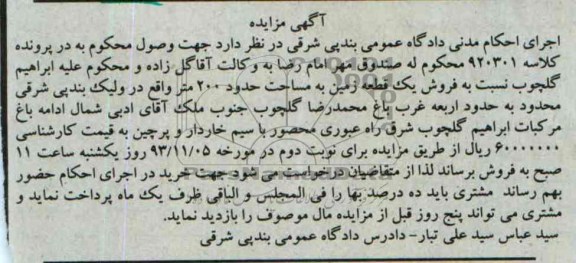 آگهی مزایده
اجرای احکام مدنی دادگاه عمومی بندپی شرقی در نظر دارد جهت وصول محکوم به در پرونده
کلاسه ۹۲۰۳۰۱ محکوم له صندوق مهر امام رضا به وکالت آقاگل زاده و محکوم علیه ابراهیم
گلچوب نسبت به فروش یک قطعه زمین به مساحت حدود ۲۰۰ متر واقع در ولیک بندپی شرقی
محدود به حدود اربعه غرب باغ محمدرضا گلچوب جنوب ملک آقای ادبی شمال ادامه باغ
مرکبات ابراهیم گلچوب شرق راه عبوری محصور با سیم خاردار و پرچین به قیمت کارشناسی
۶۰۰۰۰۰۰۰ ریال از طریق مزایده برای نوبت دوم در مورخه ۹۳/۱۱/۰۵ روز یکشنبه ساعت ۱۱
صبح به فروش برساند لذا از متقاضیان درخواست می شود جهت خرید در اجرای احکام حضور
بهم رساند مشتری باید ده درصد بها را فی المجلس و الباقی ظرف یک ماه پرداخت نماید و
مشتری می تواند پنج روز قبل از مزایده مال موصوف را بازدید نماید.
سید عباس سید علی تبار- دادرس دادگاه عمومی بندپی شرقی